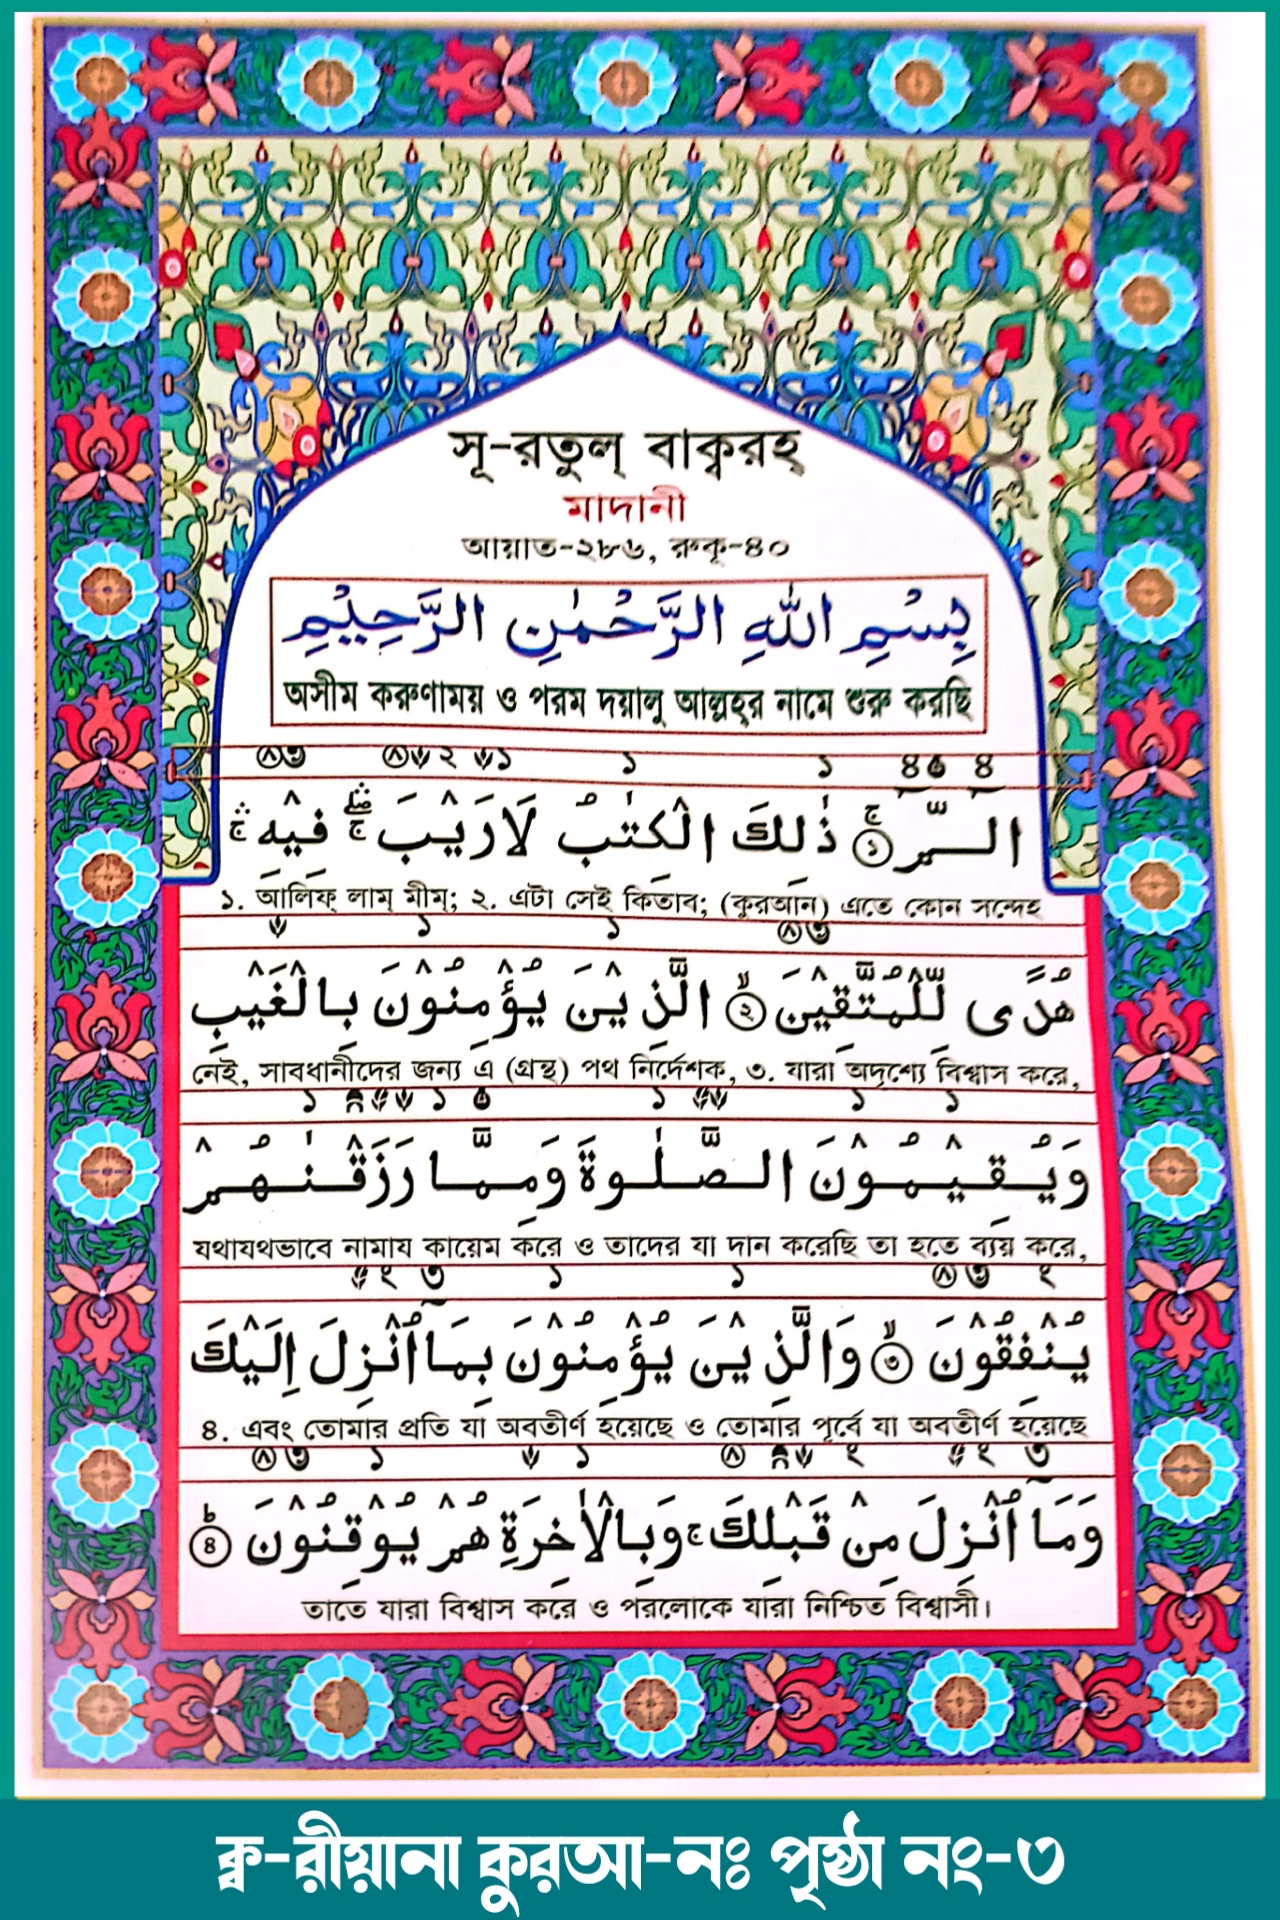 সূ-রতুল্ বাক্বরহ্
মাদানী
আয়াত-২৮৬, রুকূ-৪০
بِسْمِ اللّٰهِ الرَّحْمٰنِ الرَّحِيْمِ
অসীম করুণাময় ও পরম দয়ালু আল্লহর নামে শুরু করছি
الٓـمّٓ ۚ ① ذٰلِكَ الْكِتٰبُ لَا رَيْبَ ۛۖۚ فِيْهِ ۛۚ
১. আলিফ্ লাম্ মীম্; ২. এটা সেই কিতাব; (কুরআন) এতে কোন সন্দেহ
هُدًى لِّلْمُتَّقِيْنَ ۙ② الَّذِيْنَ يُؤْمِنُوْنَ بِالْغَيْبِ
নেই, সাবধানীদের জন্য এ (গ্রন্থ) পথ নির্দেশক, ৩. যারা অদৃশ্যে বিশ্বাস করে,
وَيُقِيْمُوْنَ الصَّلٰوةَ وَمِمَّا رَزَقْنٰهُمْ
যথাযথভাবে নামায কায়েম করে ও তাদের যা দান করেছি তা হতে ব্যয় করে,
يُنْفِقُوْنَ ۙ③ وَالَّذِيْنَ يُؤْمِنُوْنَ بِمَآ اُنْزِلَ اِلَيْكَ
৪. এবং তোমার প্রতি যা অবতীর্ণ হয়েছে ও তোমার পূর্বে যা অবতীর্ণ হয়েছে
وَمَآ اُنْزِلَ مِنْ قَبْلِكَ ۚ وَبِالْاٰخِرَةِ هُمْ يُوْقِنُوْنَ ؕ④
তাতে যারা বিশ্বাস করে ও পরলোকে যারা নিশ্চিত বিশ্বাসী।
ক্ব-রীয়ানা কুরআ-নঃ পৃষ্ঠা নং-৩